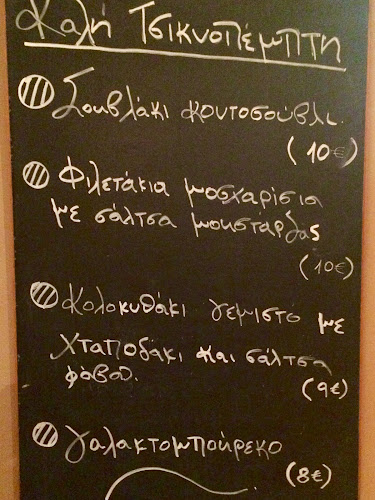 Καλή Τσικνοπέμπτη
Σουβλάκι κοντοσούβλι.
(10€)
Φιλετάκια μοσχαρίσια
με σάλτσα μουστάρδας
(10€)
Κολοκυθάκι γεμιστό με
χταποδάκι και σάλτσα
φάβα.
(9€)
γαλακτομπούρεκο
(8€)